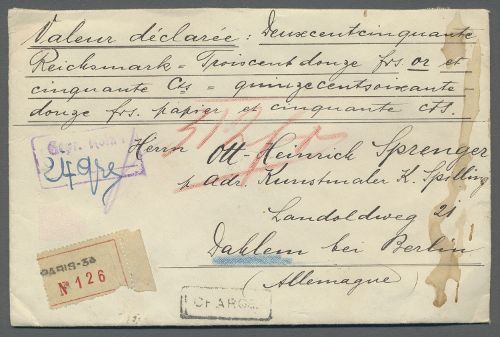 Valeur déclarée : Deuxcentcinquante
Reichsmark = Troiscentdouze frs or et
cinquante Cts = quinzecentsoixante-
douze frs. papier et cinquante cts.
Herrn Ott-Heinrich Sprenger
p. adr. Kunstmaler K. Spilling
Landoldweg 21
Dahlem bei Berlin
(Allemagne)
PARIS-34
N° 126
CHARG